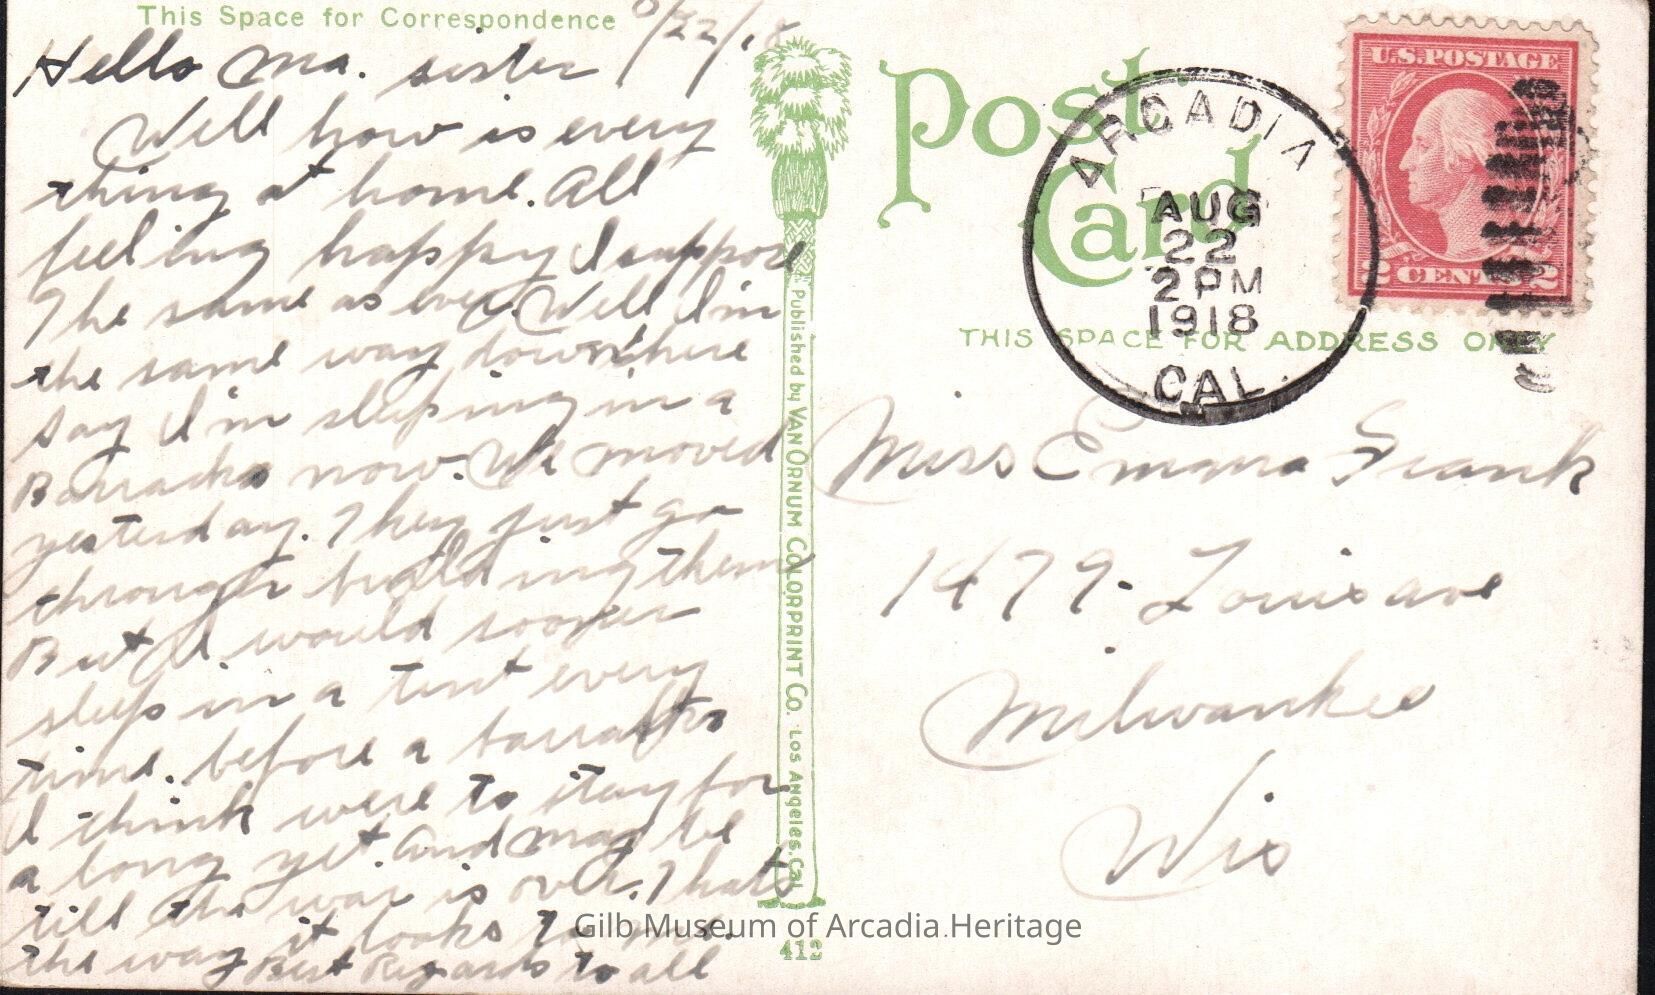 This Space for Correspondence
8/22/18
Hello Ma. sister
Well how is every
thing at home. All
feeling happy I suppose
The same as ever. Well I'm
the same way down here
say I'm sleeping in a
Barracks now. We moved
yesterday. They just go
through building them
But I. would sooner
sleep in a tent every
time. before a barracks
I think were to stay for
a long yet. and may be
till the war is over. Thats
the way it looks to me.
Best Regards to all
Published by VAN ORNUM COLORPRINT CO. LOS ANGELES, CAL.
412
Post
Card
THIS SPACE FOR ADDRESS ONLY
ARCADIA
AUG
22
2 PM
1918
CAL.
U.S. POSTAGE
2 CENTS 2
Miss Emma Frank
1479- Louis ave
Milwaukee
Wis
Gilb Museum of Arcadia Heritage